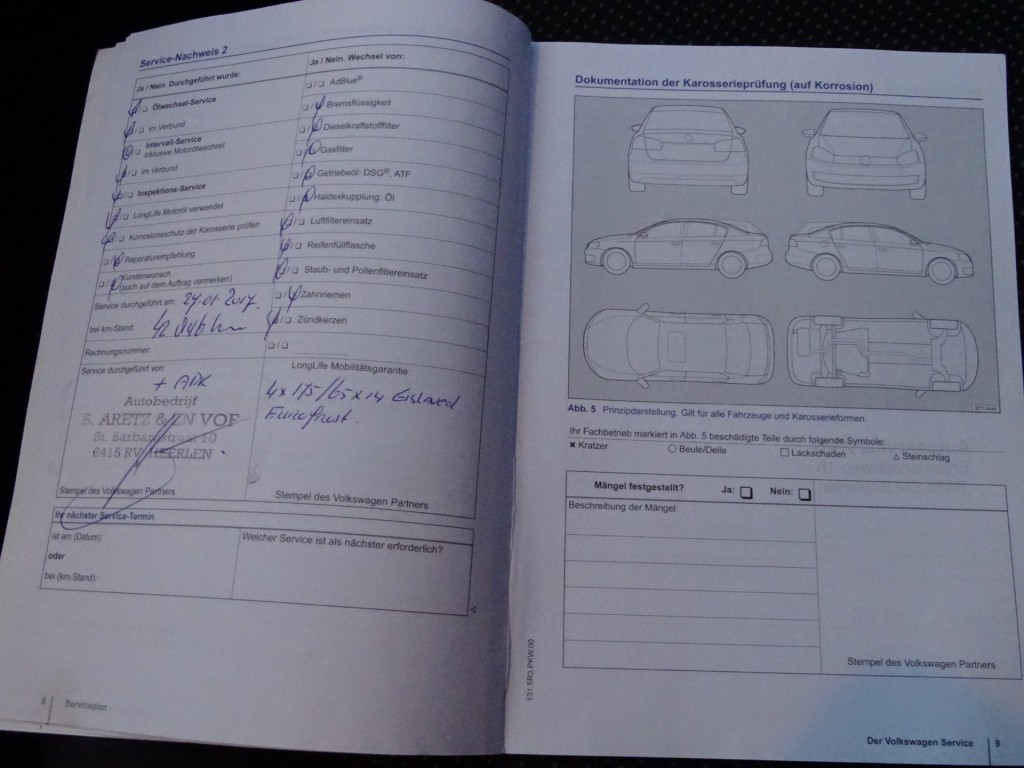 Service-Nachweis 2
Ja / Nein. Durchgeführt wurde:
❑ Ölwechsel-Service
❑ im Verbund
❑ Intervall-Service
inklusive Motorölwechsel
❑ im Verbund
❑ Inspektions-Service
❑ LongLife Motoröl verwendet
❑ Korrosionsschutz der Karosserie prüfen
❑ / Reparaturempfehlung
❑ / Kundenwunsch
(auch auf dem Auftrag vermerken)
Service durchgeführt am: 24.01.2017.
bei km-Stand:
Rechnungsnummer:
Service durchgeführt von:
+ APK
Autobedrijf
S. ARETZ & ZN VOF
St. Barbarastraat 10
6415 RV HEERLEN
Stempel des Volkswagen Partners
Ja / Nein. Wechsel von:
❑ / ❑ AdBlue®
❑ / Bremsflüssigkeit
❑ / Dieselkraftstofffilter
❑ / Gasfilter
❑ / Getriebeöl: DSG®, ATF
❑ / Haldexkupplung: Öl
/ ❑ Luftfiltereinsatz
/ ❑ Reifenfüllflasche
/ ❑ Staub- und Pollenfiltereinsatz
❑ / Zahnriemen
/ ❑ Zündkerzen
❑ / ❑
LongLife Mobilitätsgarantie:
4 x 175/65 x 14 Gislaved
Eurofrost.
Stempel des Volkswagen Partners
Ihr nächster Service-Termin
ist am (Datum):
oder
bei (km-Stand):
Welcher Service ist als nächster erforderlich?
8 Serviceplan
Dokumentation der Karosserieprüfung (auf Korrosion)
Abb. 5 Prinzipdarstellung. Gilt für alle Fahrzeuge und Karosserieformen.
Ihr Fachbetrieb markiert in Abb. 5 beschädigte Teile durch folgende Symbole:
× Kratzer ○ Beule/Delle □ Lackschaden △ Steinschlag
Mängel festgestellt? Ja: ❑ Nein: ❑
Beschreibung der Mängel:
Stempel des Volkswagen Partners
131.5R3.PKW.00
Der Volkswagen Service 9